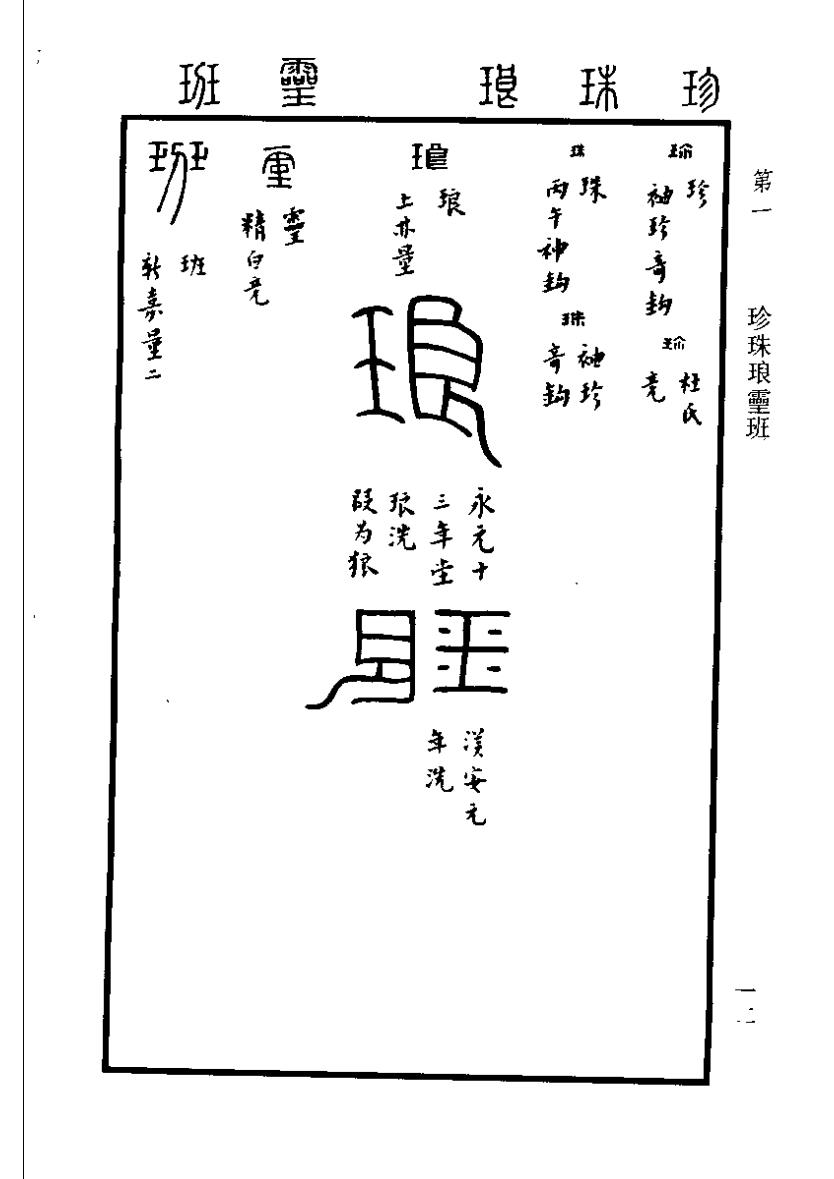 珍 珠 琅 靈 班
第一
珍珠琅靈班
珍
珍
袖珍奇鉤
珍
杜氏
竟
珠
珠
丙午神鉤
珠
袖珍
奇鉤
琅
琅
上林量
琅
永元十
三年堂
琅洗
叚为狼
琅
漢安元
年洗
靈
靈
精白竟
班
班
新嘉量二